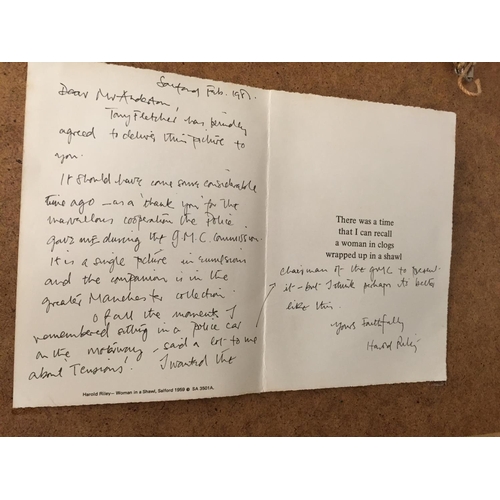 Salford Feb. 1981.
Dear Mr Anderton,
Tony Fletcher has kindly
agreed to deliver this picture to
you.
It should have come some considerable
time ago - as a 'thank you' for the
marvellous cooperation the Police
gave me during the G.M.C. Commission.
It is a single picture in
and the companion is in the
greater Manchester collection.
Of all the moments I
remembered sitting in a Police car
on the motorway - said a lot to me
about Tensions! I wanted the
Harold Riley – Woman in a Shawl, Salford 1959 © SA 3501A.
There was a time
that I can recall
a woman in clogs
wrapped up in a shawl
chairman of the GMC to present
it - but I think perhaps its better
like this.
Yours Faithfully
Harold Riley